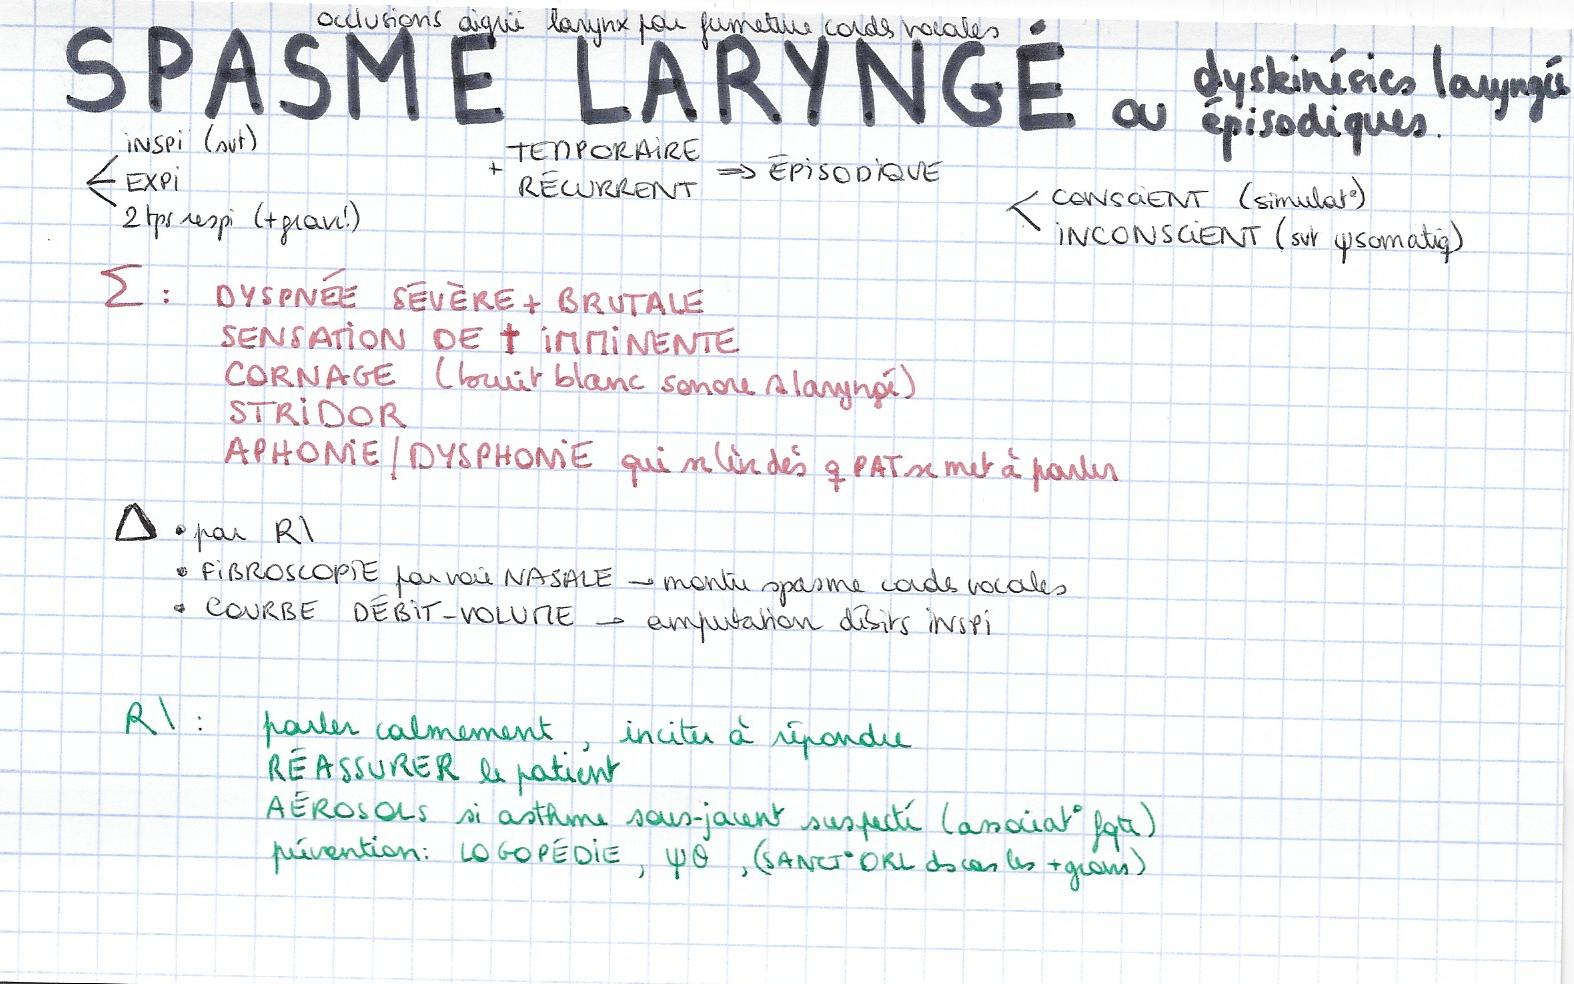 occlusions aiguë larynx par fermeture cordes vocales
SPASME LARYNGÉ ou dyskinésies laryngées épisodiques.
< INSPI (svt)
EXPI
2 tps respi (+ grav!)
+ TEMPORAIRE
RÉCURRENT => ÉPISODIQUE
< CONSCIENT (simulat°)
INCONSCIENT (svt ψsomatiq)
Σ : DYSPNÉE SÉVÈRE + BRUTALE
SENSATION DE † IMMINENTE
CORNAGE (bruit blanc sonore laryngé)
STRIDOR
APHONIE / DYSPHONIE qui dès q PAT se met à parler
Δ • par R\
• FIBROSCOPIE par voie NASALE → montre spasme cordes vocales
• COURBE DÉBIT-VOLUME → amputation débits inspi
R\ : parler calmement, inciter à répondre
RÉASSURER le patient
AÉROSOLS si asthme sous-jacent suspecté (associat° fqte)
prévention: LOGOPÉDIE, ψθ, (SANCT° ORL ds cas les + graves)